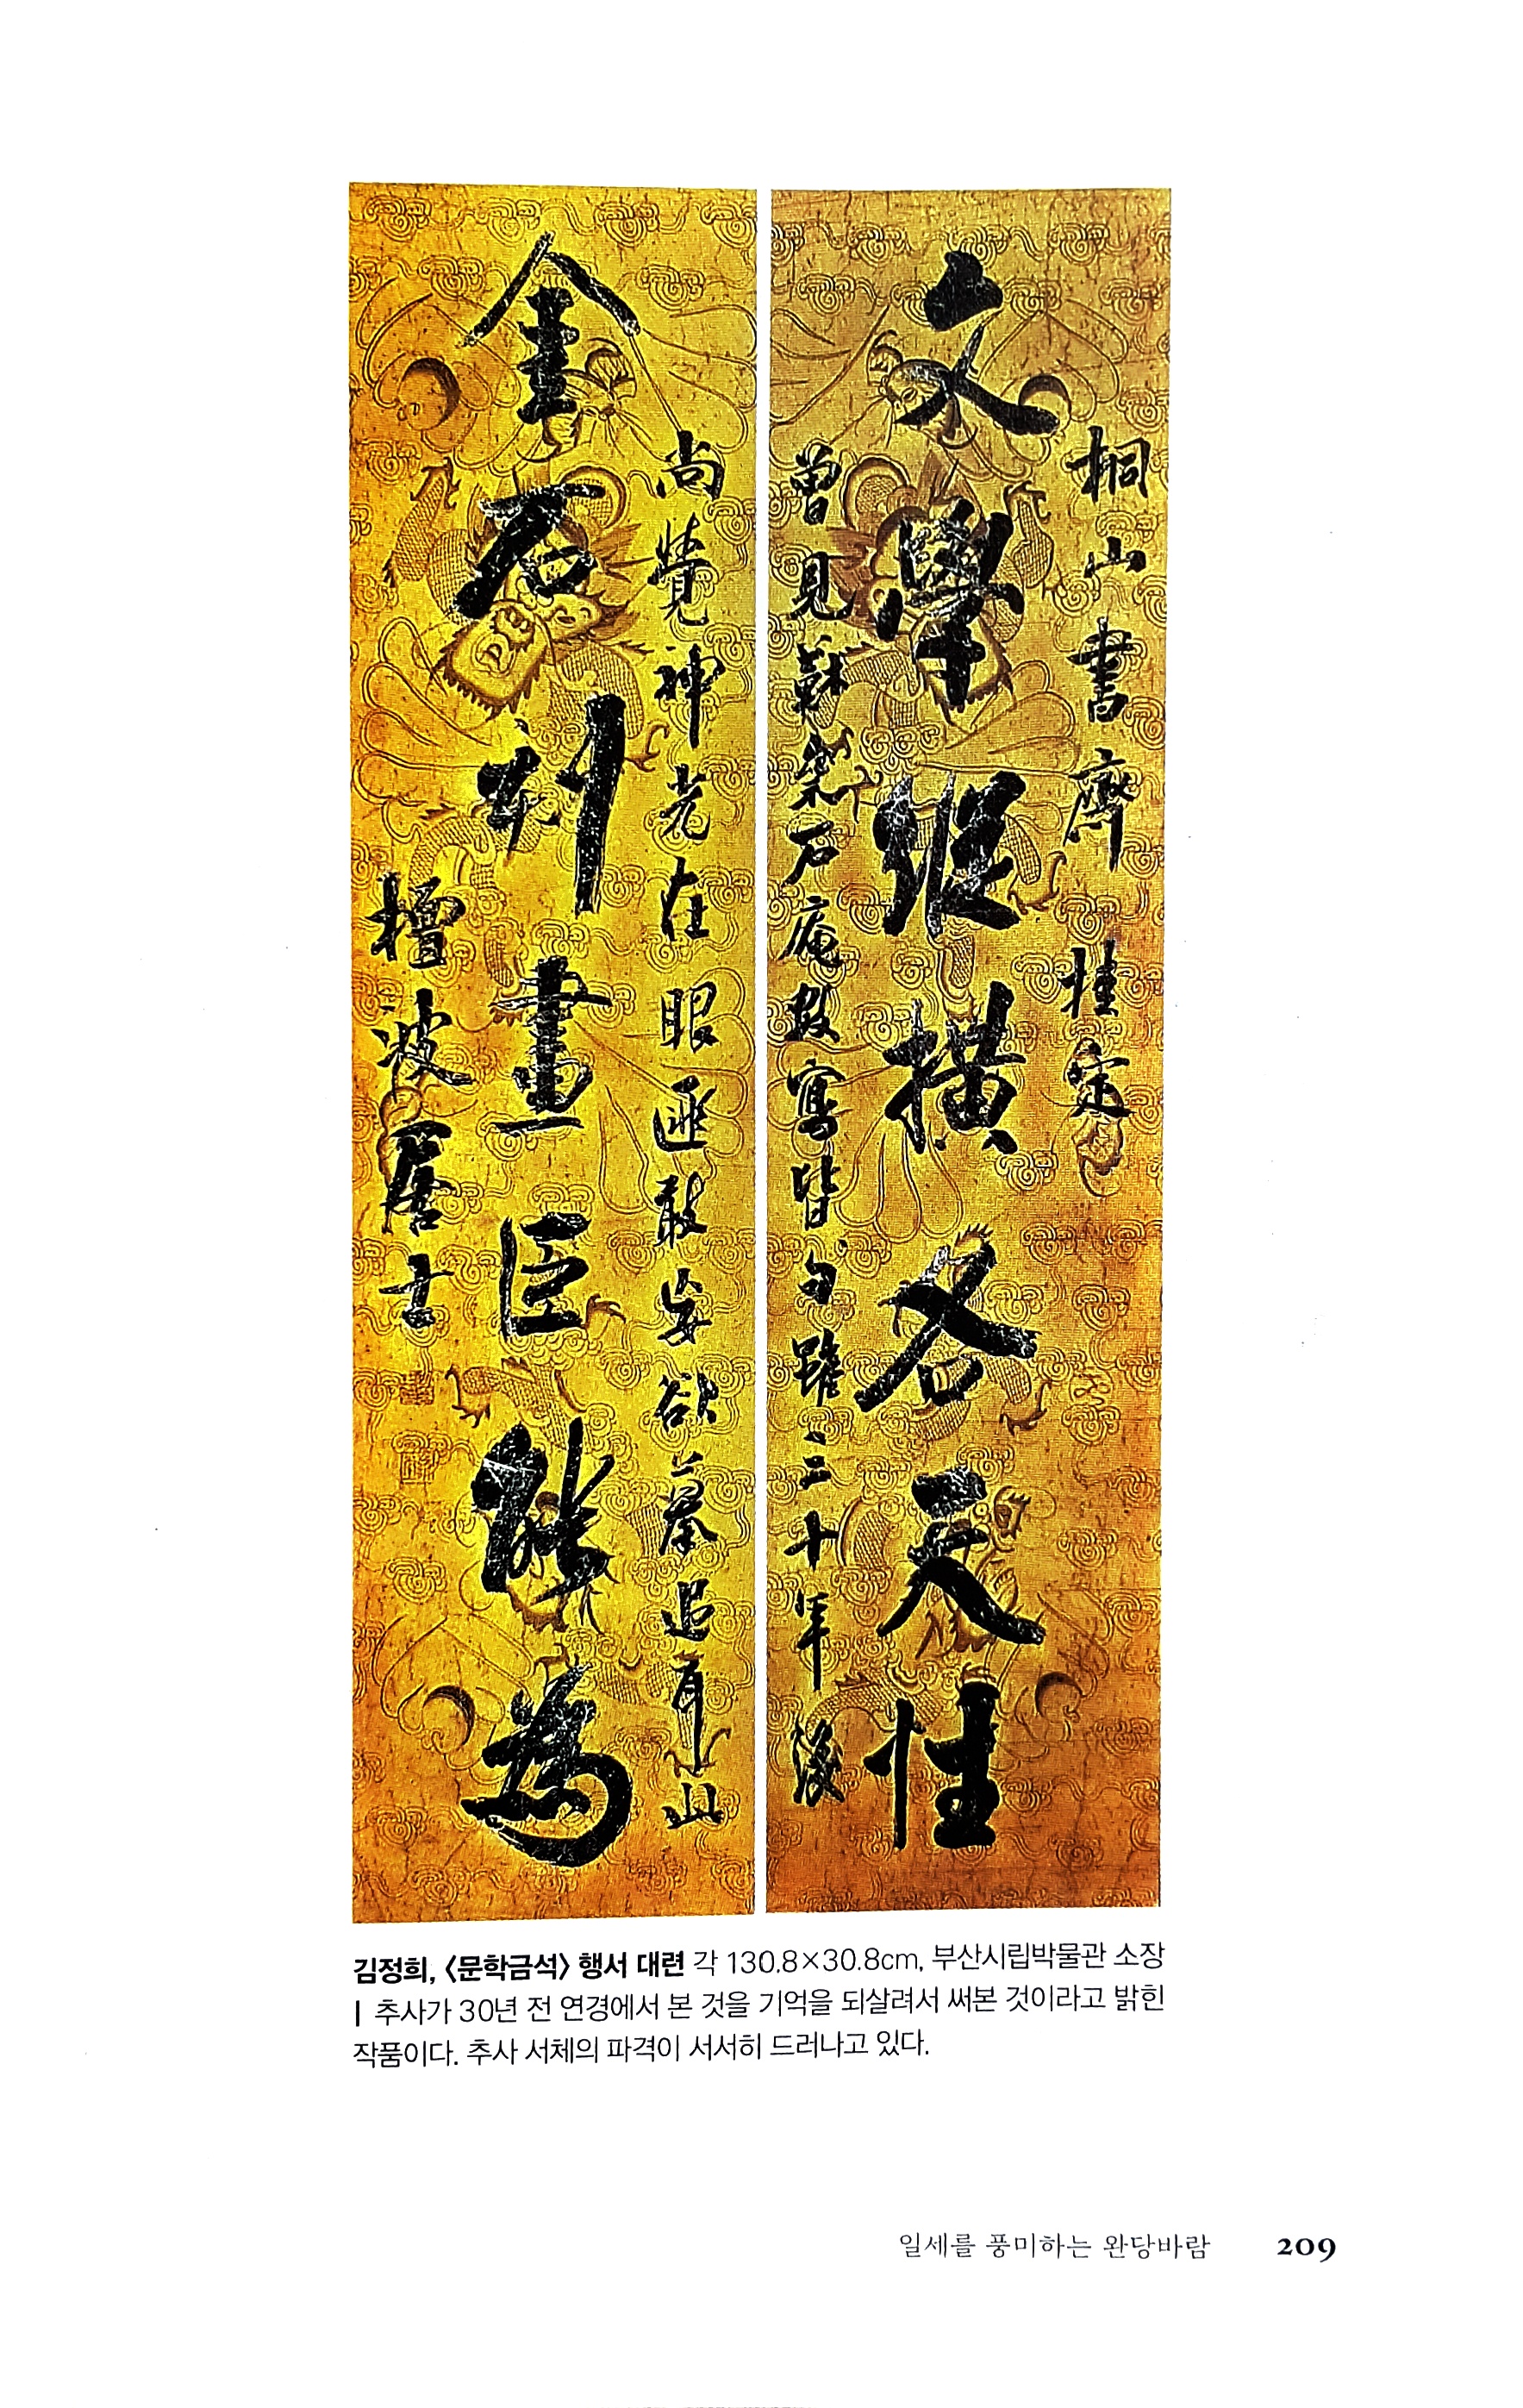 桐山書齋
文學縱橫各天性
曾見蘇齋石庵 寫 句雖三十年後
尚覺神光在眼 敢妄欲摹追耳山
金石刻畫臣能爲
檀波居士
김정희, 〈문학금석〉 행서 대련 각 130.8×30.8cm, 부산시립박물관 소장
| 추사가 30년 전 연경에서 본 것을 기억을 되살려서 써본 것이라고 밝힌
작품이다. 추사 서체의 파격이 서서히 드러나고 있다.
일세를 풍미하는 완당바람 209